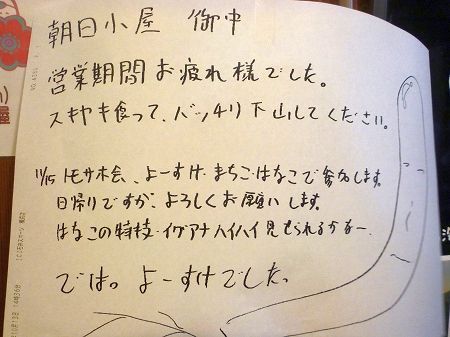 朝日小屋 御中
営業期間お疲れ様でした。
スキヤキ食って、バッチリ下山してください。
11/15 トモサホ会、よーすけ・まちこ・はなこで参加します。
日帰りですが、よろしくお願いします。
はなこの特技・イグアナハイハイ見せられるかなー。
では。よーすけでした。